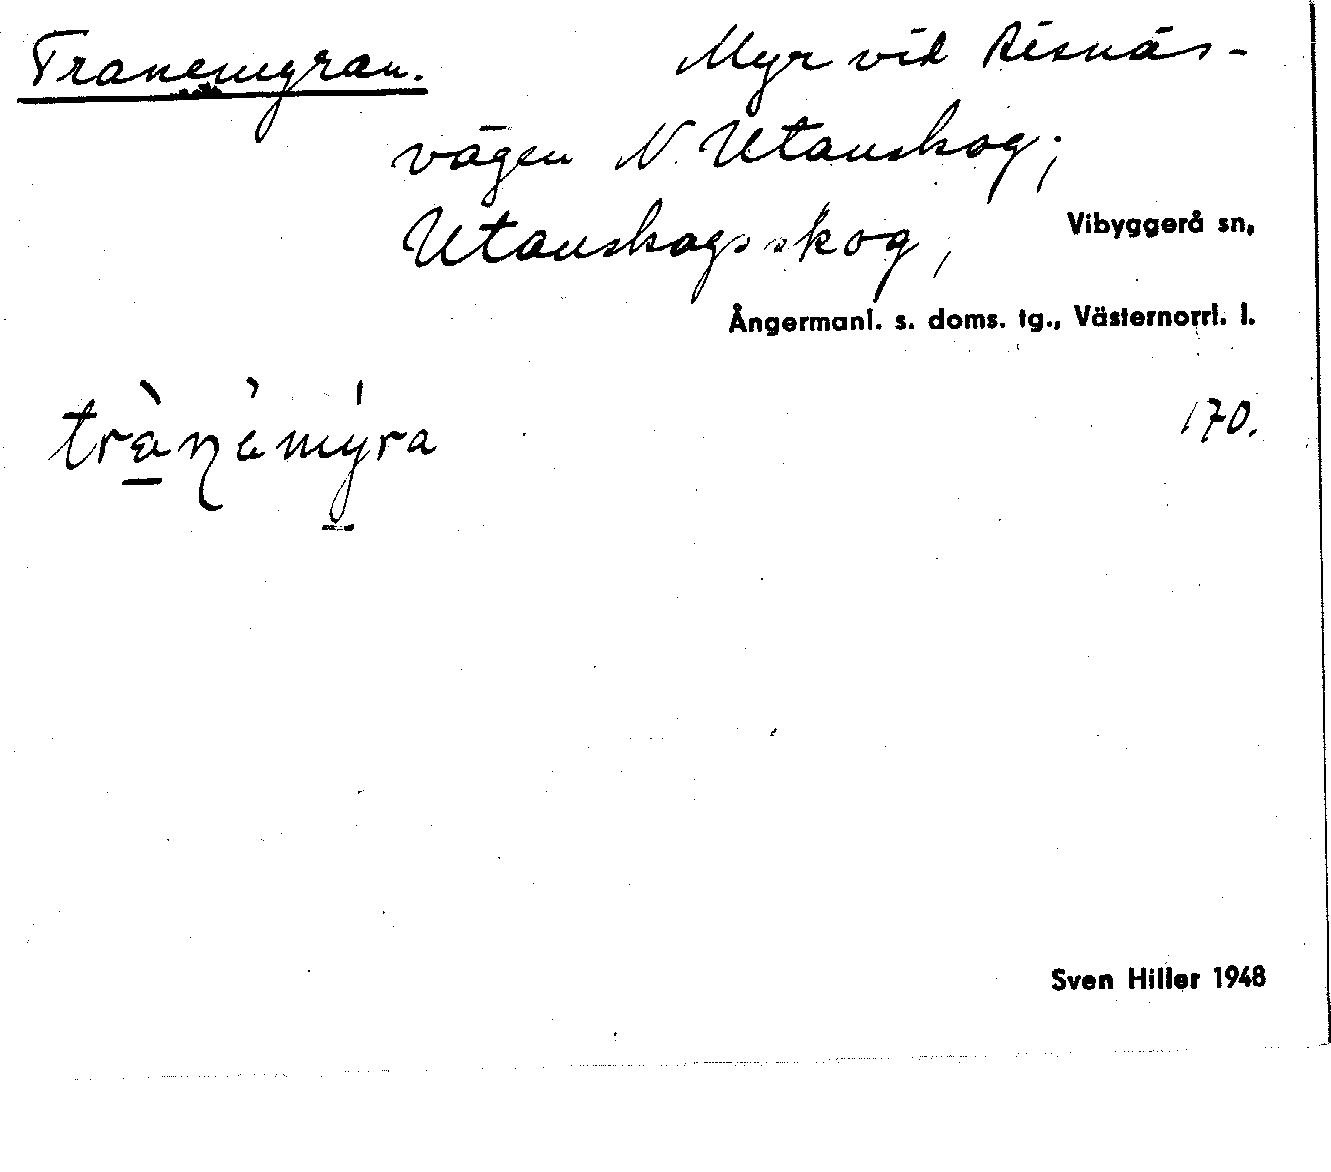 Tranemyran. Myr vid Risnäs-
vägen N Utanskog;
Utanskogsskog, Vibyggerå sn,
Ångermanl. s. doms. tg., Västernorrl. l.
170.
Sven Hiller 1948